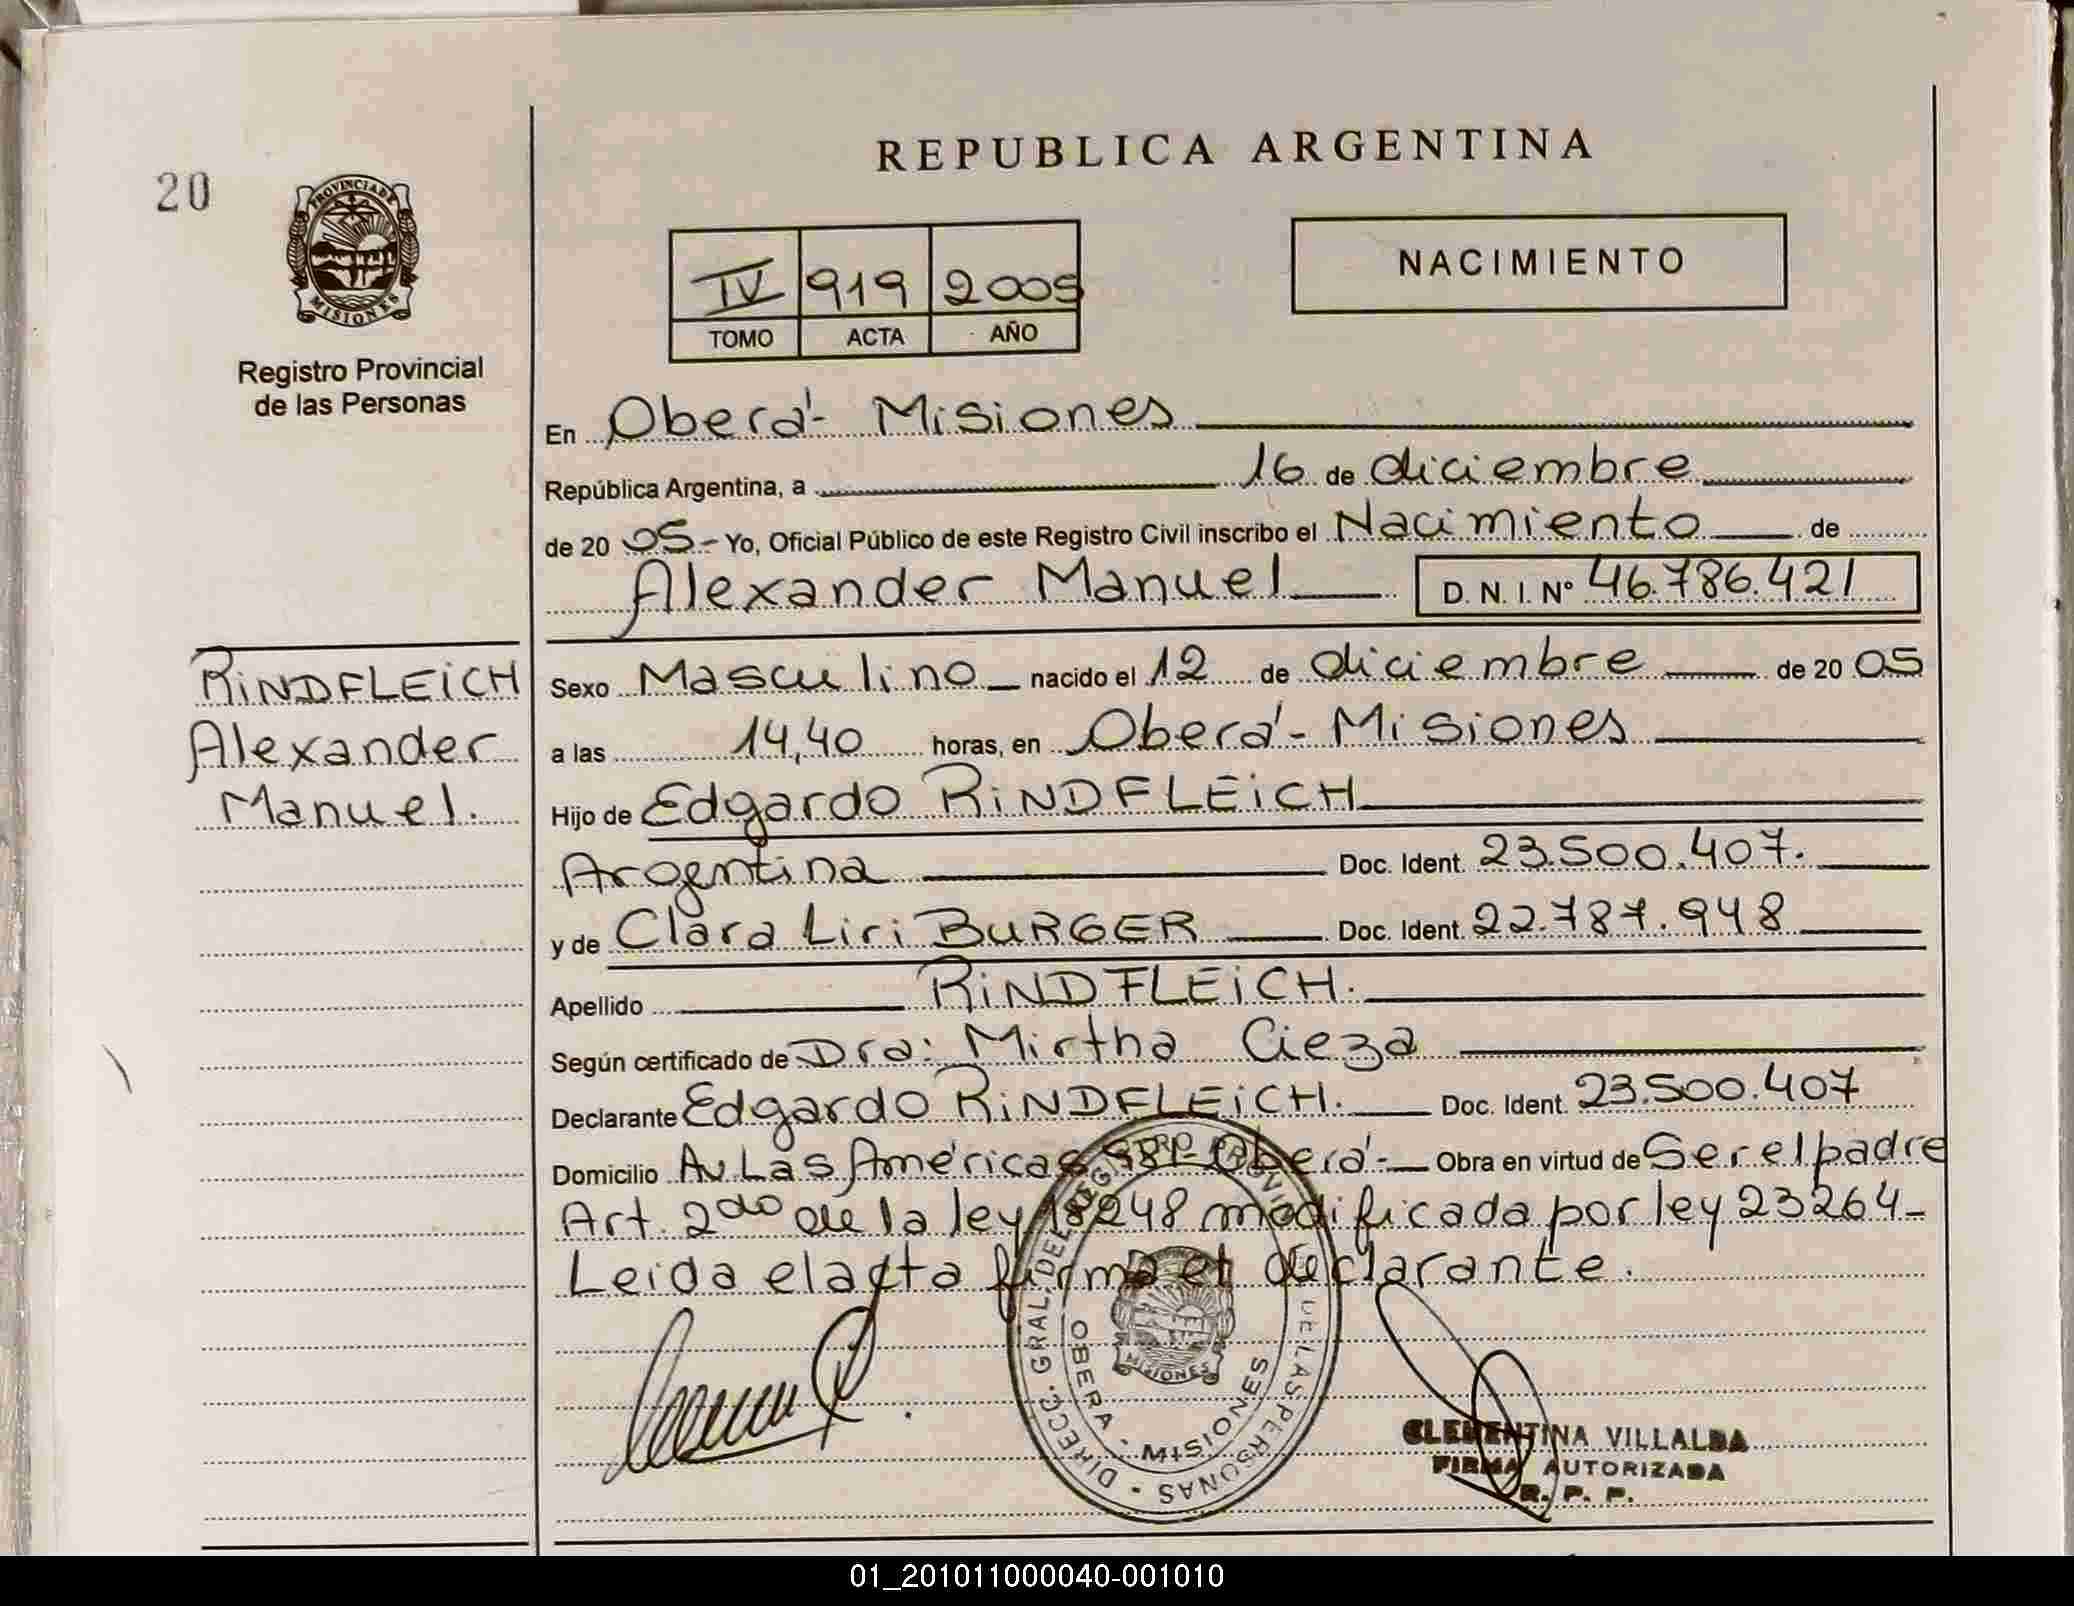 REPUBLICA ARGENTINA
20
PROVINCIA DE
MISIONES
Registro Provincial
de las Personas
IV 919 2005
TOMO ACTA AÑO
NACIMIENTO
En Oberá - Misiones
República Argentina, a 16 de diciembre
de 20 05 - Yo, Oficial Público de este Registro Civil inscribo el Nacimiento de
Alexander Manuel D. N. I. Nº 46.786.421
RiNDFLEiCH
Alexander
Manuel.
Sexo Masculino nacido el 12 de diciembre de 20 05
a las 14,40 horas, en Oberá - Misiones
Hijo de Edgardo RiNDFLEiCH
Argentina Doc. Ident. 23.500.407.
y de Clara Liri BURGER Doc. Ident. 22.787.948
Apellido RiNDFLEiCH.
Según certificado de Dra: Mirtha Cieza
Declarante Edgardo RiNDFLEiCH. Doc. Ident. 23.500.407
Domicilio Av Las Américas Oberá - Obra en virtud de Ser el padre
Art. 2do de la ley 18248 modificada por ley 23264-
Leida el acta firma el declarante.
DIRECC. GRAL. DEL REGISTRO PROVINCIAL DE LAS PERSONAS
OBERA - MISIONES
MISIONES
CLEMENTINA VILLALBA
FIRMA AUTORIZADA
R. P. P.
01_201011000040-001010